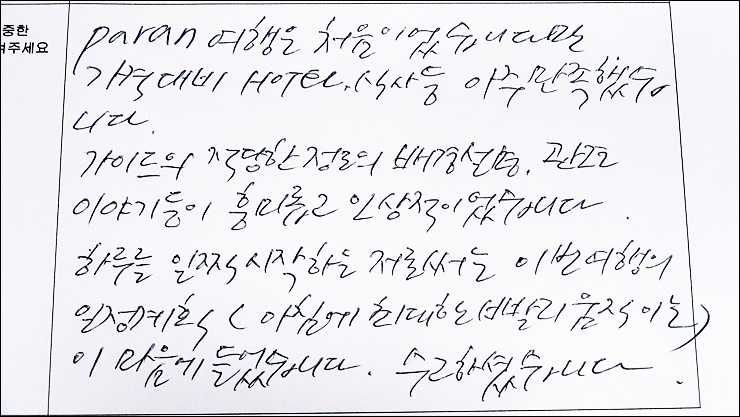 중한
겨주세요
paran 여행은 처음이었습니다만
가격대비 HOTEL, 식사등 아주 만족했습
니다.
가이드의 적당한 정도의 배경설명, 관련
이야기등이 흥미롭고 인상적이었습니다.
하루를 일찍 시작하는 저로써는 이번여행의
일정계획 (아침에 최대한 빨리 움직이는)
이 마음에 들었습니다. 수고하셨습니다.